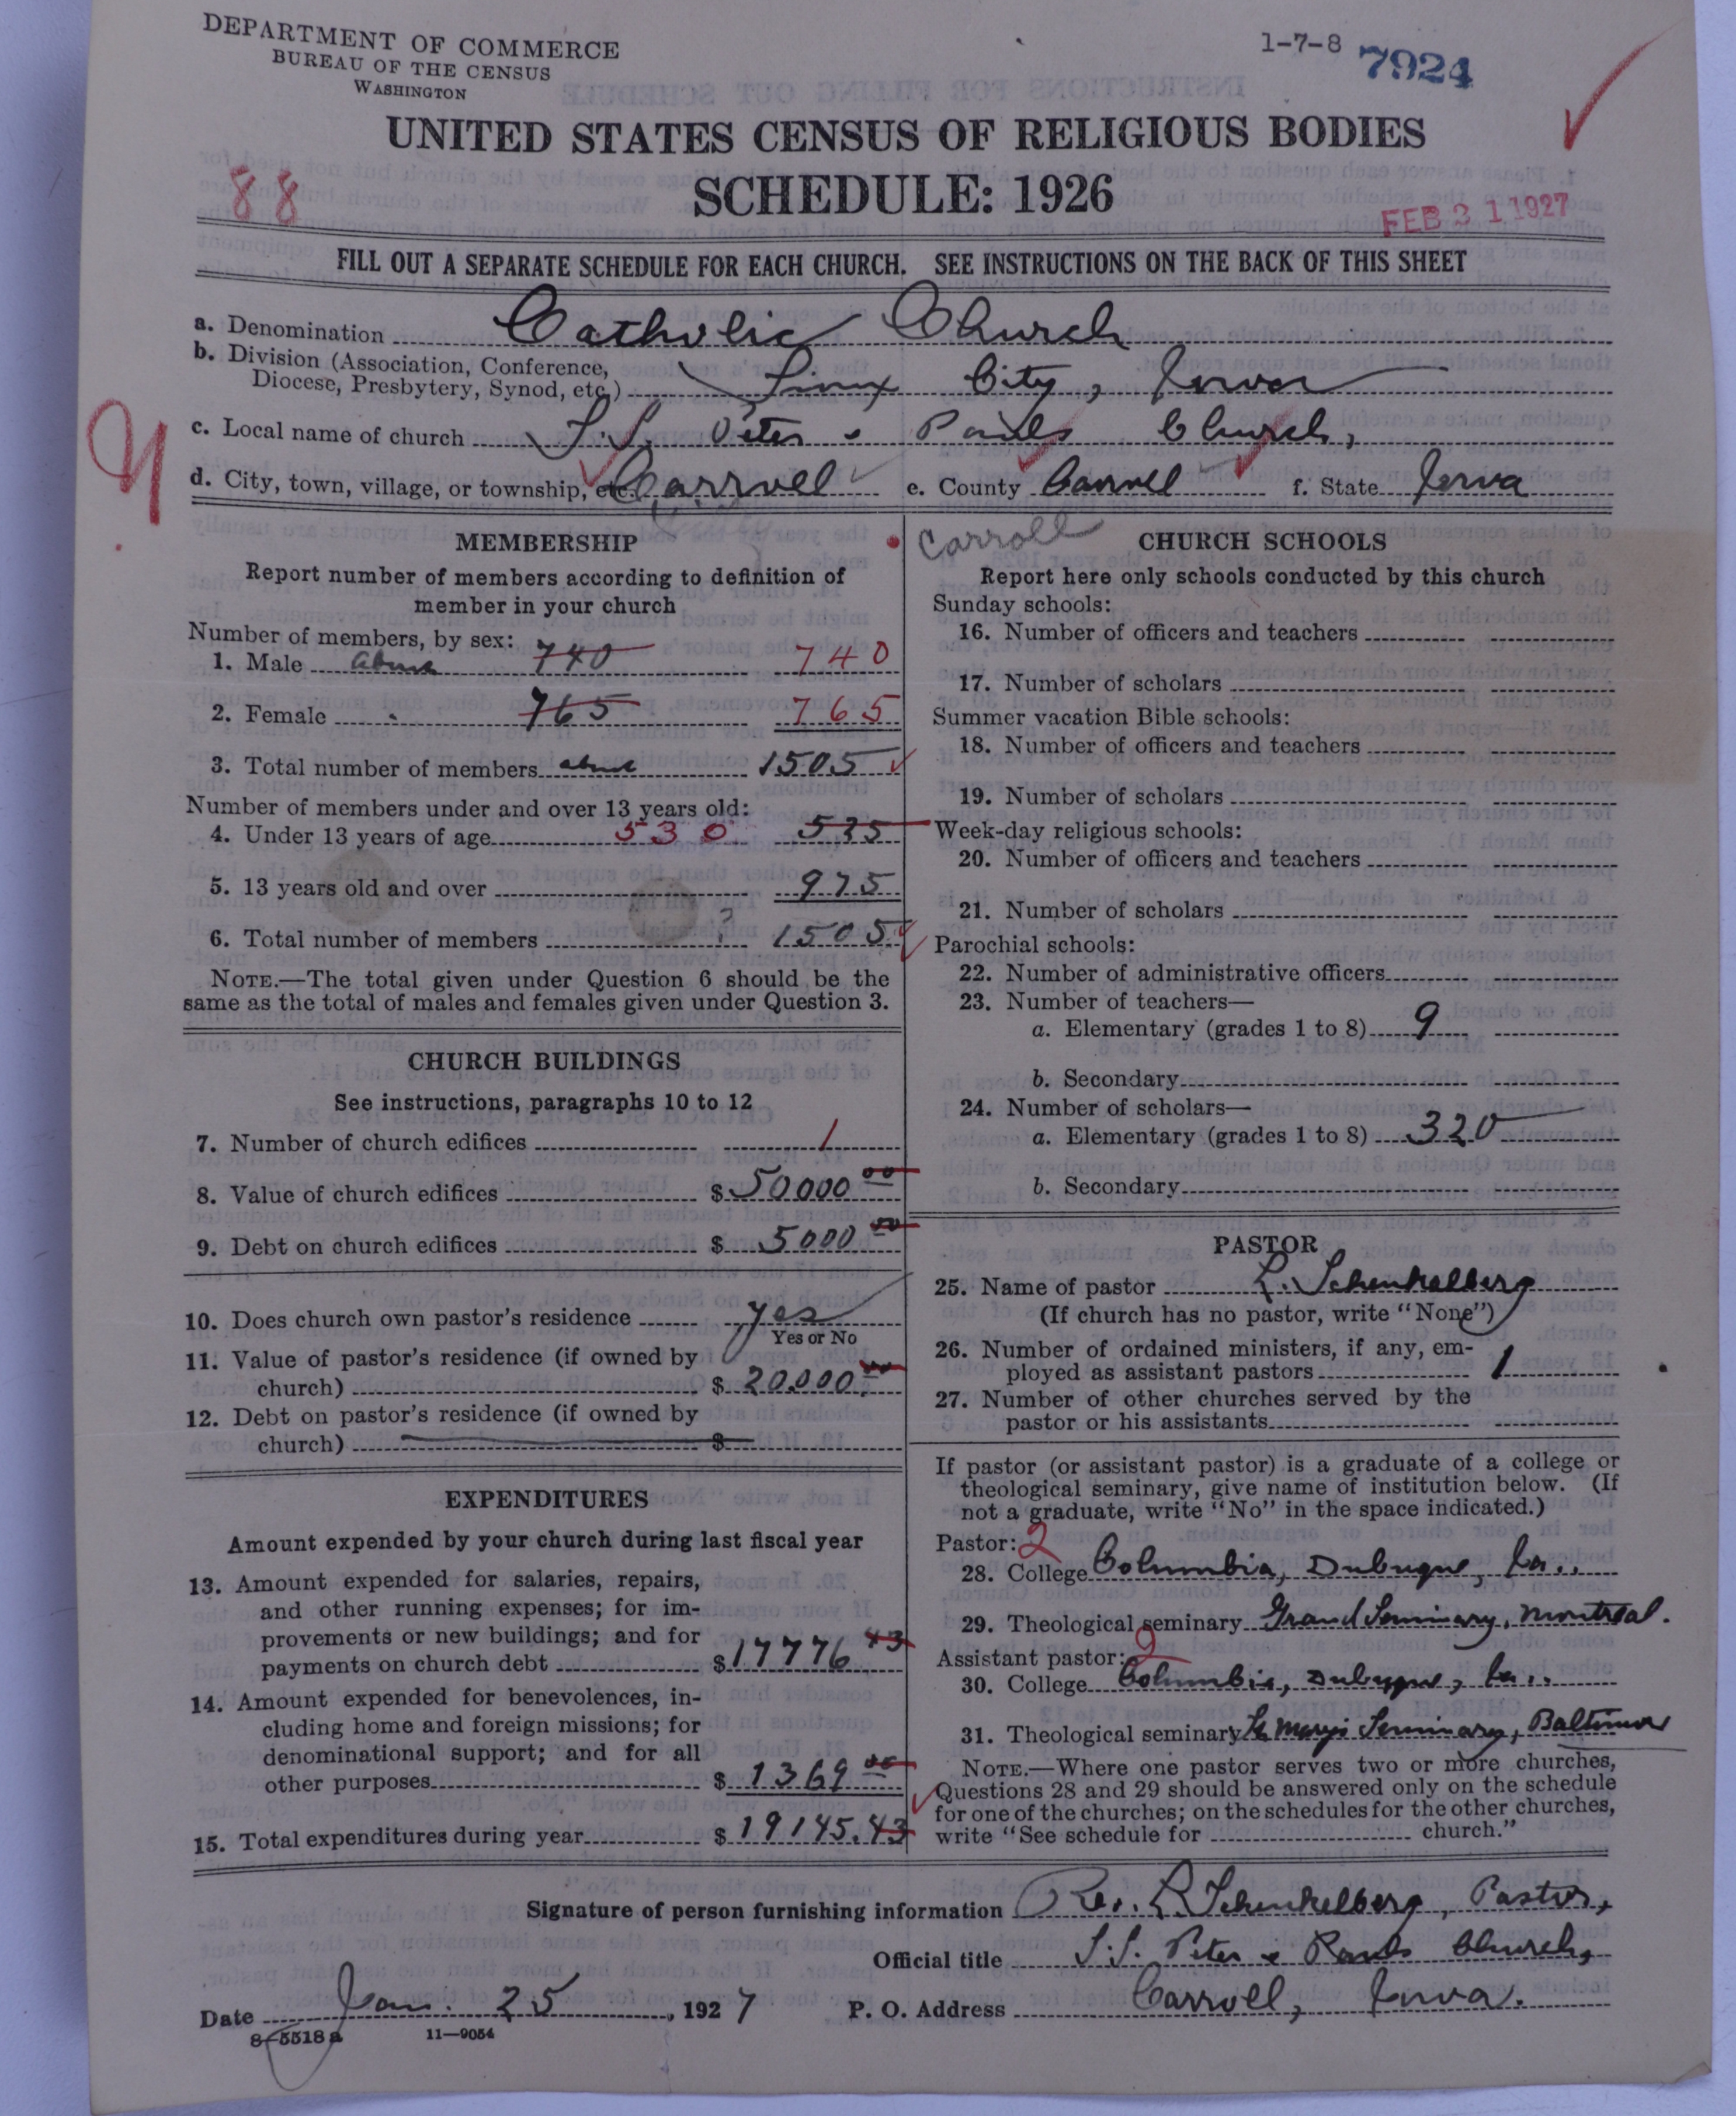 DEPARTMENT OF COMMERCE
BUREAU OF THE CENSUS
WASHINGTON
1-7-8 7924
UNITED STATES CENSUS OF RELIGIOUS BODIES
SCHEDULE: 1926
88
FEB 21 1927
FILL OUT A SEPARATE SCHEDULE FOR EACH CHURCH. SEE INSTRUCTIONS ON THE BACK OF THIS SHEET
a. Denomination Catholic Church
b. Division (Association, Conference,
Diocese, Presbytery, Synod, etc.) Sioux City, Iowa
c. Local name of church S.S. Peter & Pauls Church,
d. City, town, village, or township, etc. Carroll e. County Carroll f. State Iowa
Carroll
MEMBERSHIP
Report number of members according to definition of
member in your church
Number of members, by sex:
1. Male about 740 740
2. Female 765 765
3. Total number of members about 1505
Number of members under and over 13 years old:
4. Under 13 years of age 530 535
5. 13 years old and over 975
6. Total number of members ? 1505
NOTE.—The total given under Question 6 should be the
same as the total of males and females given under Question 3.
CHURCH BUILDINGS
See instructions, paragraphs 10 to 12
7. Number of church edifices 1
8. Value of church edifices $ 50000 00
9. Debt on church edifices $ 5000 00
10. Does church own pastor's residence yes
Yes or No
11. Value of pastor's residence (if owned by
church) $ 20.000. 00
12. Debt on pastor's residence (if owned by
church) $
EXPENDITURES
Amount expended by your church during last fiscal year
13. Amount expended for salaries, repairs,
and other running expenses; for im-
provements or new buildings; and for
payments on church debt $ 17776 43
14. Amount expended for benevolences, in-
cluding home and foreign missions; for
denominational support; and for all
other purposes $ 1369 00
15. Total expenditures during year $ 19145.43
CHURCH SCHOOLS
Report here only schools conducted by this church
Sunday schools:
16. Number of officers and teachers
17. Number of scholars
Summer vacation Bible schools:
18. Number of officers and teachers
19. Number of scholars
Week-day religious schools:
20. Number of officers and teachers
21. Number of scholars
Parochial schools:
22. Number of administrative officers
23. Number of teachers—
a. Elementary (grades 1 to 8) 9
b. Secondary
24. Number of scholars—
a. Elementary (grades 1 to 8) 320
b. Secondary
PASTOR
25. Name of pastor L. Schenkelberg
(If church has no pastor, write "None")
26. Number of ordained ministers, if any, em-
ployed as assistant pastors 1
27. Number of other churches served by the
pastor or his assistants
If pastor (or assistant pastor) is a graduate of a college or
theological seminary, give name of institution below. (If
not a graduate, write "No" in the space indicated.)
Pastor: 2
28. College Columbia, Dubuque, Ia..
29. Theological seminary Grand Seminary, Montreal.
Assistant pastor: 2
30. College Columbia, Dubuque, Ia..
31. Theological seminary St Marys Seminary, Baltimore
NOTE.—Where one pastor serves two or more churches,
Questions 28 and 29 should be answered only on the schedule
for one of the churches; on the schedules for the other churches,
write "See schedule for church."
Signature of person furnishing information Rev. L. Schenkelberg, Pastor,
Official title S.S. Peter & Pauls Church,
Date Jan. 25, 1927 P. O. Address Carroll, Iowa.
8-5518 a 11—9054